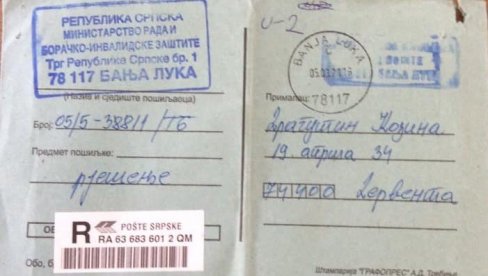 РЕПУБЛИКА СРПСКА
МИНИСТАРСТВО РАДА И
БОРАЧКО-ИНВАЛИДСКЕ ЗАШТИТЕ
Трг Републике Српске бр. 1
78 117 БАЊА ЛУКА
(Назив и сједиште пошиљаоца)
Број: 05/5-3881/ТБ
Предмет пошиљке:
рјешење
R POŠTE SRPSKE
RA 63 683 601 2 QM
Обо, б
и-2
BANJA LUKA
78117
Прималац:
Драгутин Козина
19. априла 34
74400 Дервента
Штампарија "ГРАФОПРЕС" А.Д. Требиње